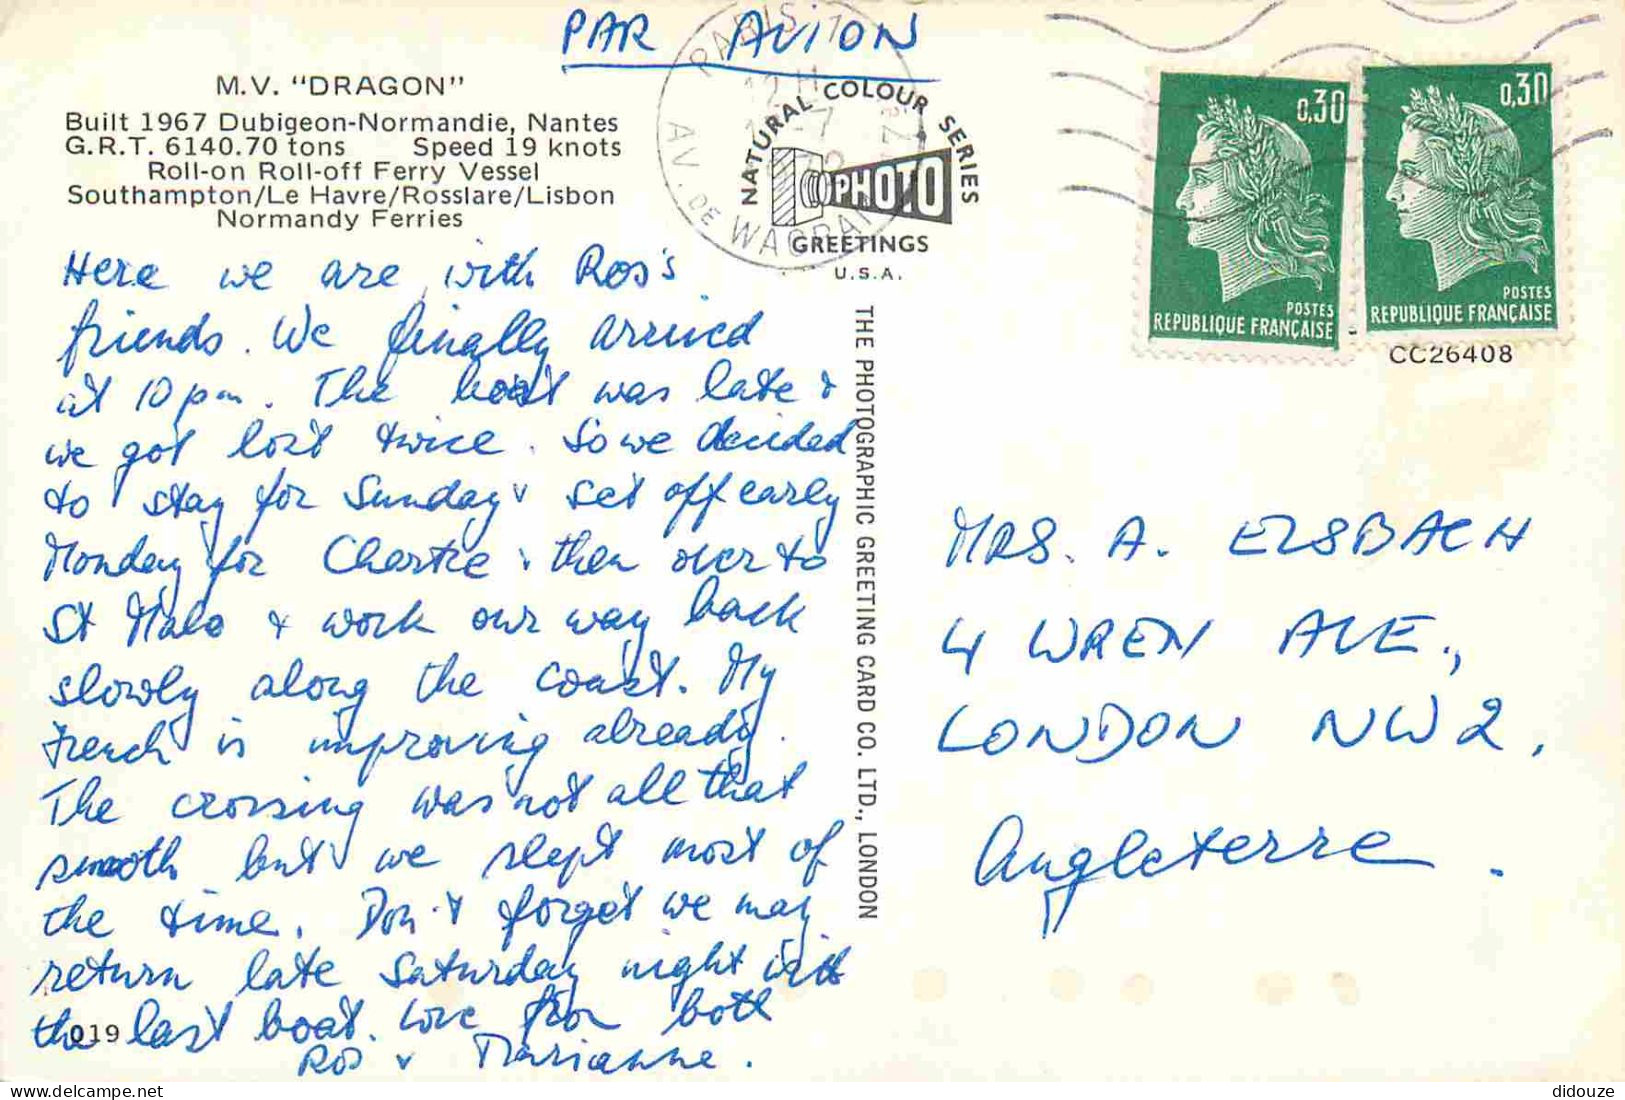 PAR AVION
M.V. "DRAGON"
Built 1967 Dubigeon-Normandie, Nantes
G.R.T. 6140.70 tons Speed 19 knots
Roll-on Roll-off Ferry Vessel
Southampton/Le Havre/Rosslare/Lisbon
Normandy Ferries
Here we are with Ros's
friends. We finally arrived
at 10 pm. The boat was late &
we got lost twice. So we decided
to stay for Sunday & set off early
Monday for Chartre & then over to
St Malo & work our way back
slowly along the coast. My
French is improving already.
The crossing was not all that
smooth but we slept most of
the time. Don't forget we may
return late Saturday night with
the last boat. Love from both
Ros & Marianne.
019
PARIS
12 H
AV. DE WAGRAM
NATURAL COLOUR SERIES
PHOTO
GREETINGS
U.S.A.
THE PHOTOGRAPHIC GREETING CARD CO. LTD., LONDON
0,30
POSTES
REPUBLIQUE FRANÇAISE
0,30
POSTES
REPUBLIQUE FRANÇAISE
CC26408
MRS. A. ELSBACH
4 WREN AVE.,
LONDON NW2,
Angleterre.
didouze